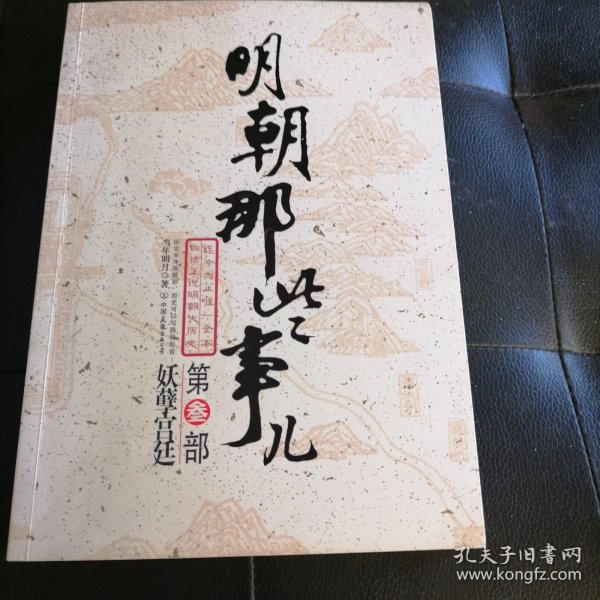 明朝那些事儿
迄今为止唯一全本
白话正说明朝大历史
历史本身很精彩,历史可以写得很好看
当年明月◎著
中国友谊出版公司
第叁部
妖孽宫廷
孔夫子旧书网
www.kongfz.com